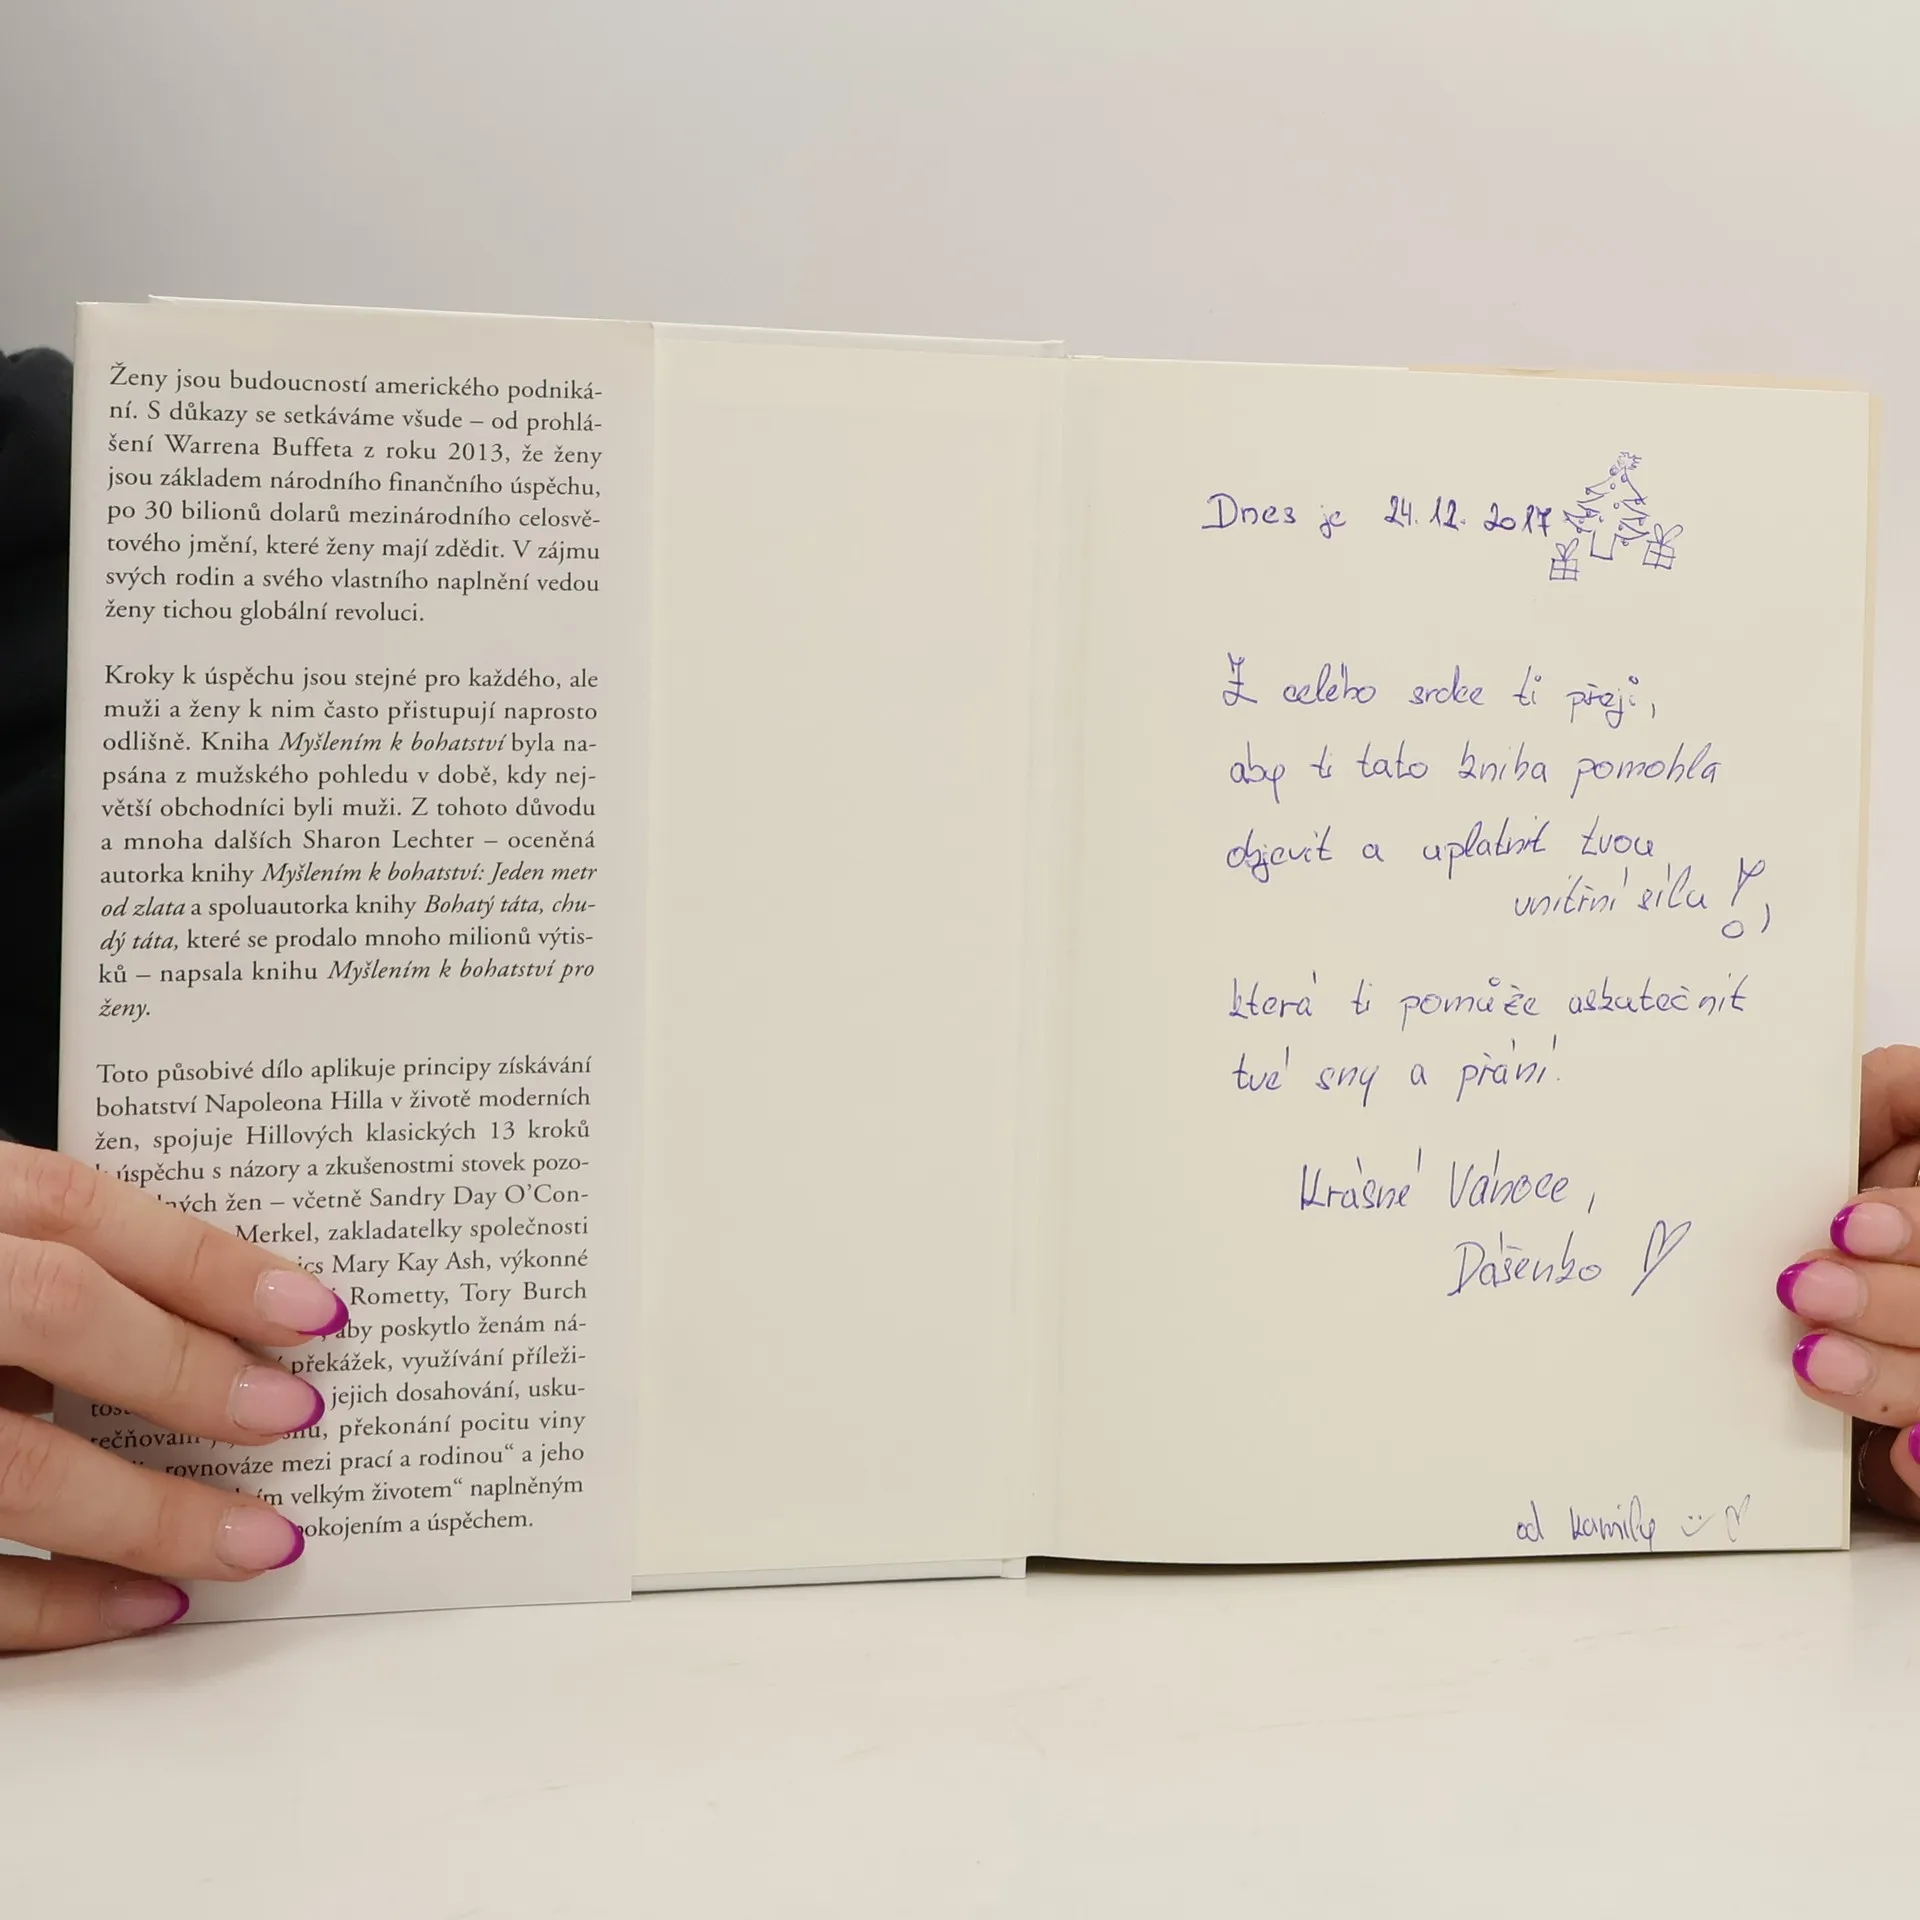 Ženy jsou budoucností amerického podniká-
ní. S důkazy se setkáváme všude – od prohlá-
šení Warrena Buffeta z roku 2013, že ženy
jsou základem národního finančního úspěchu,
po 30 bilionů dolarů mezinárodního celosvě-
tového jmění, které ženy mají zdědit. V zájmu
svých rodin a svého vlastního naplnění vedou
ženy tichou globální revoluci.
Kroky k úspěchu jsou stejné pro každého, ale
muži a ženy k nim často přistupují naprosto
odlišně. Kniha Myšlením k bohatství byla na-
psána z mužského pohledu v době, kdy nej-
větší obchodníci byli muži. Z tohoto důvodu
a mnoha dalších Sharon Lechter – oceněná
autorka knihy Myšlením k bohatství: Jeden metr
od zlata a spoluautorka knihy Bohatý táta, chu-
dý táta, které se prodalo mnoho milionů výtis-
ků – napsala knihu Myšlením k bohatství pro
ženy.
Toto působivé dílo aplikuje principy získávání
bohatství Napoleona Hilla v životě moderních
žen, spojuje Hillových klasických 13 kroků
úspěchu s názory a zkušenostmi stovek pozo-
žen – včetně Sandry Day O’Con-
Merkel, zakladatelky společnosti
Mary Kay Ash, výkonné
Rometty, Tory Burch
aby poskytlo ženám ná-
překážek, využívání příleži-
jejich dosahování, usku-
překonání pocitu viny
rovnováze mezi prací a rodinou“ a jeho
velkým životem“ naplněným
a úspěchem.
Dnes je 24. 12. 2017
Z celého srdce ti přeji,
aby ti tato kniha pomohla
objevit a uplatnit tvou
vnitřní sílu !,
která ti pomůže uskutečnit
tvé sny a přání.
Krásné Vánoce,
Dášenko ♡
od Kamily :) ♡